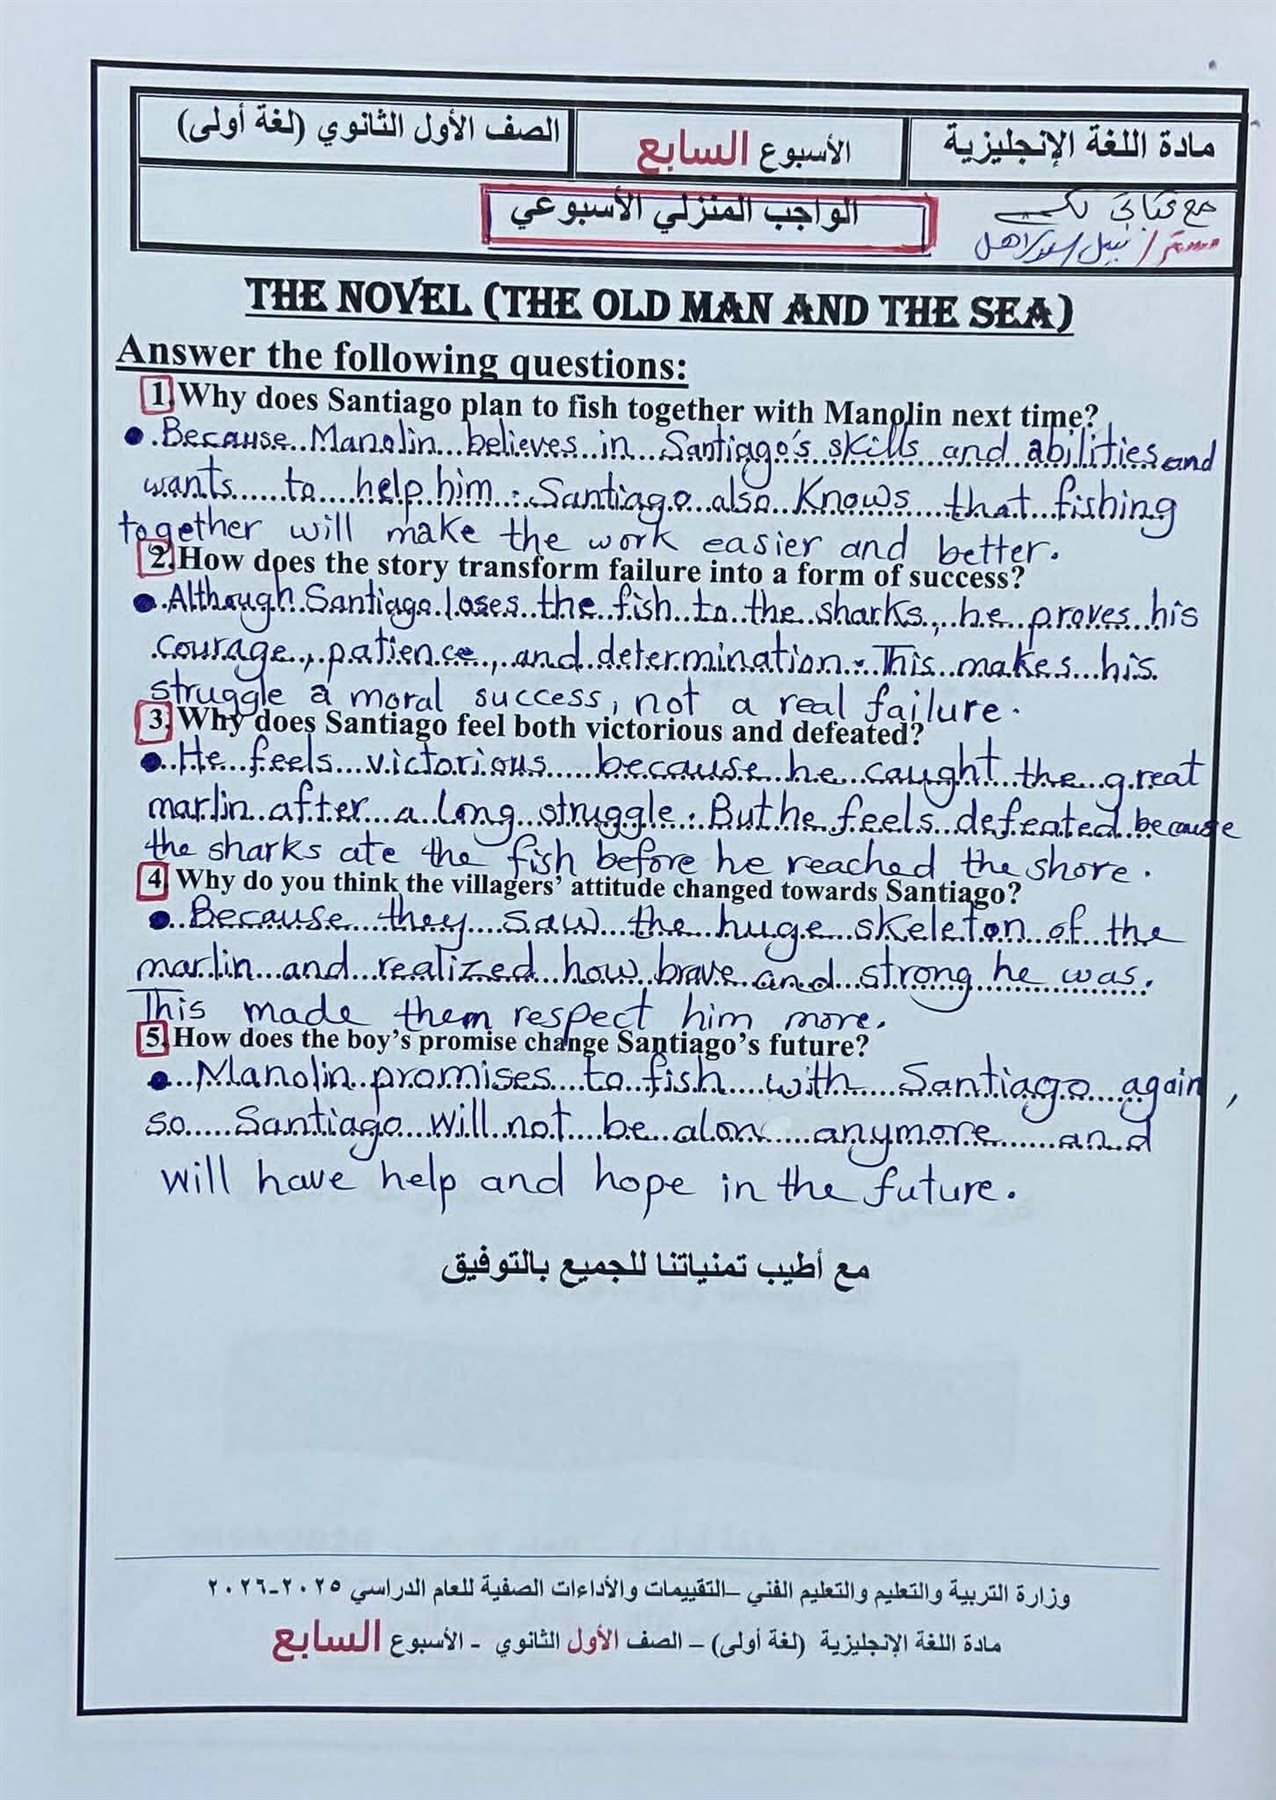 مادة اللغة الإنجليزية
الأسبوع السابع
الصف الأول الثانوي (لغة أولى)
الواجب المنزلي الأسبوعي
مع تحياتي لكم
مستر / نبيل
THE NOVEL (THE OLD MAN AND THE SEA)
Answer the following questions:
1. Why does Santiago plan to fish together with Manolin next time?
Because Manolin believes in Santiago's skills and abilities and
wants to help him. Santiago also knows that fishing
together will make the work easier and better.
2. How does the story transform failure into a form of success?
Although Santiago loses the fish to the sharks, he proves his
courage, patience, and determination. This makes his
struggle a moral success, not a real failure.
3. Why does Santiago feel both victorious and defeated?
He feels victorious because he caught the great
marlin after a long struggle. But he feels defeated because
the sharks ate the fish before he reached the shore.
4. Why do you think the villagers' attitude changed towards Santiago?
Because they saw the huge skeleton of the
marlin and realized how brave and strong he was.
This made them respect him more.
5. How does the boy's promise change Santiago's future?
Manolin promises to fish with Santiago again,
so Santiago will not be alone anymore and
will have help and hope in the future.
مع أطيب تمنياتنا للجميع بالتوفيق
وزارة التربية والتعليم والتعليم الفني –التقييمات والأداءات الصفية للعام الدراسي ٢٠٢٥-٢٠٢٦
مادة اللغة الإنجليزية (لغة أولى) – الصف الأول الثانوي - الأسبوع السابع